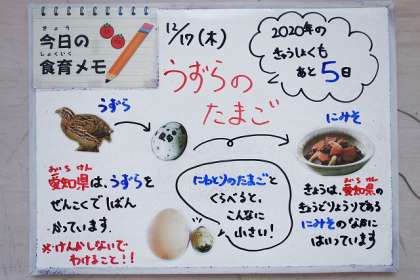 きょう
今日の
しょくいく
食育メモ
12/17(木)
うずらの
たまご
2020年の
きゅうしょくも
あと5日
うずら
にみそ
あいちけん
愛知県は、うずらを
ぜんこくでいちばん
かっています。
※けんかしないで
わけること!!
にわとりのたまごと
くらべると、
こんなに
小さい!
きょうは、愛知県の
きょうどりょうりである
にみそのなかに
はいっています